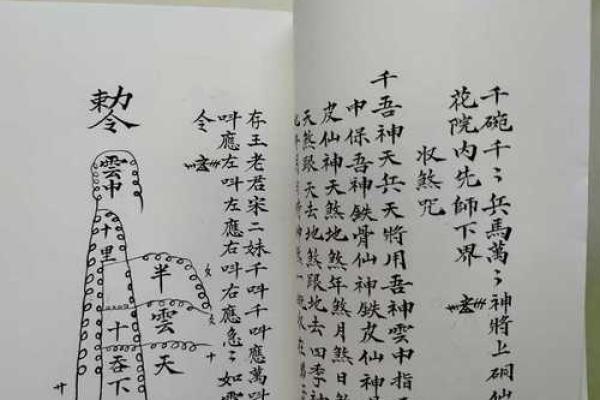 千碗千〻兵馬萬〻神將上硐仙
花院内先師下界
收煞咒
千吾神天兵天將用吾神雲中指
中保吾神鉄骨仙神鉄皮仙神
皮仙神天煞地煞年煞月煞日煞
天煞跟天去地煞跟地去四季神
存王老君宋二妹千呌千呌應萬呌
呌應左呌左應右呌右應急〻如雲
令
勅令
雲中
十里
半雲天
十
吞下